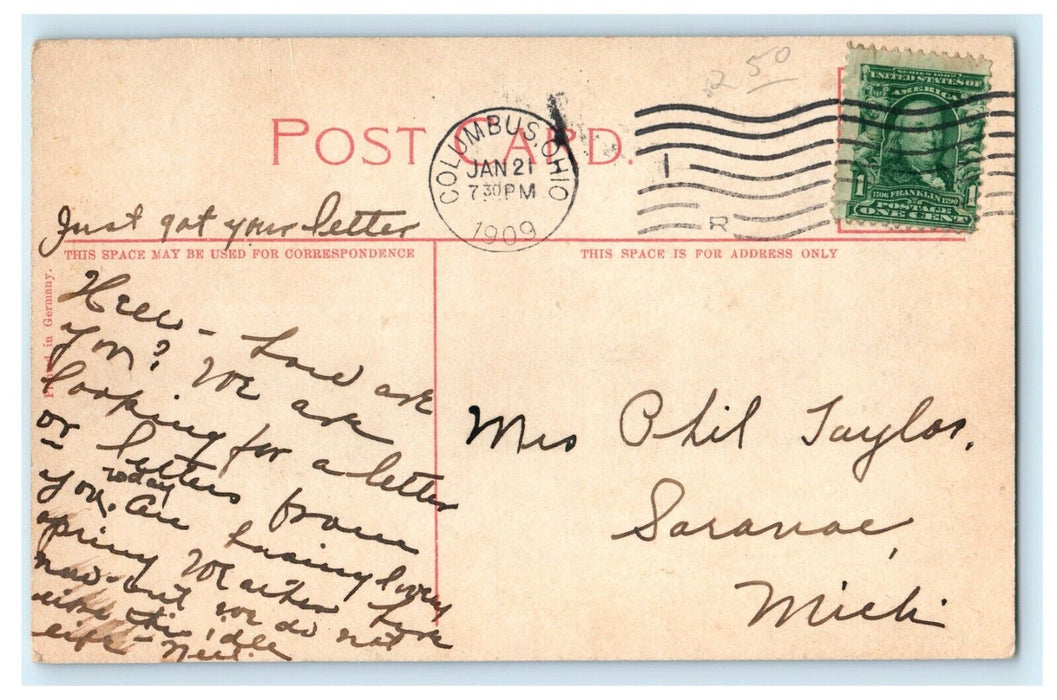 2 50
SERIES 1902
UNITED STATES OF
AMERICA
1 1
1706 FRANKLIN 1790
POSTAGE
ONE CENT
POST CARD.
COLUMBUS, OHIO
JAN 21
7 30 PM
1909
1
R
Just got your letter
THIS SPACE MAY BE USED FOR CORRESPONDENCE
THIS SPACE IS FOR ADDRESS ONLY
Printed in Germany.
- how are
you? We are
looking for a letter
or letters from
you today. Are having lovely
spring weather here
now - but we do not
like this idle
life -
Mrs Phil Taylor,
Saranac,
Mich.